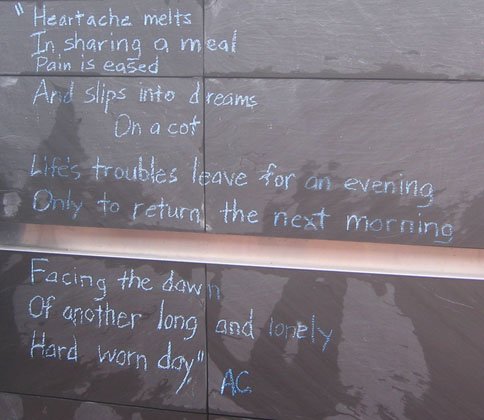 "Heartache melts
In sharing a meal
Pain is eased
And slips into dreams
On a cot
Life's troubles leave for an evening
Only to return the next morning
Facing the dawn
Of another long and lonely
Hard worn day"
AC